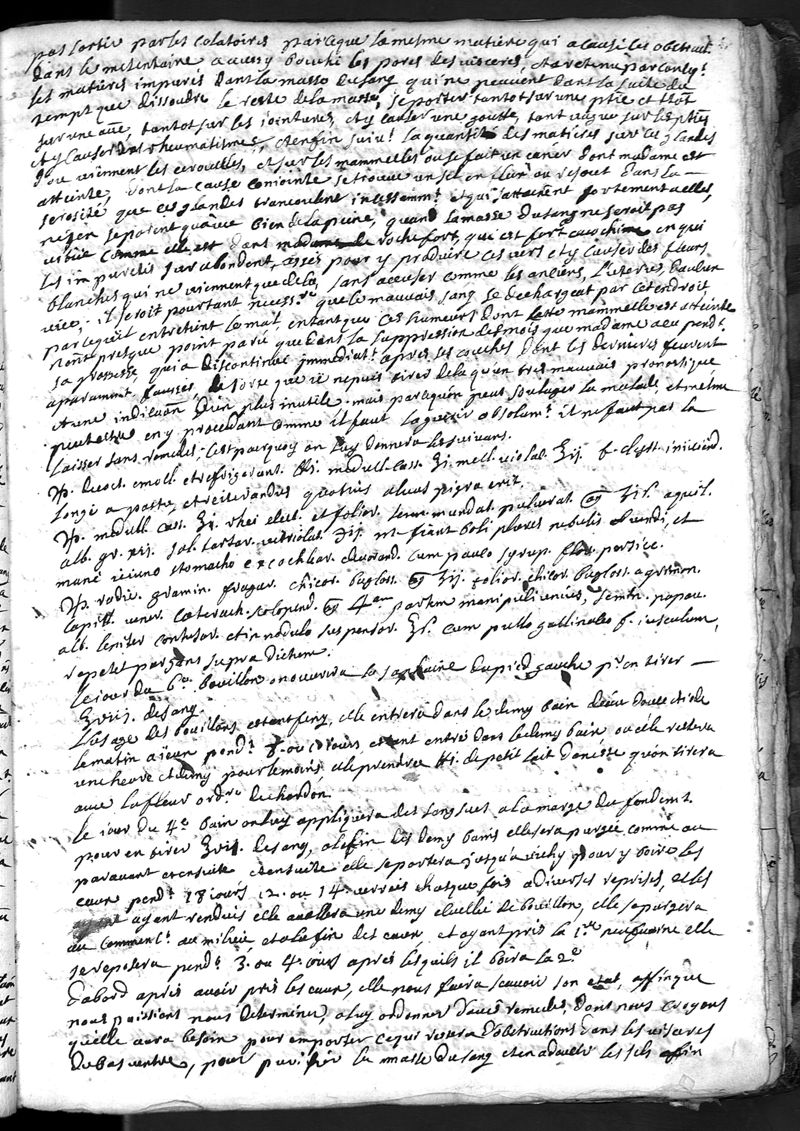 pas sortir par les colatoires parceque la mesme matiere qui a causé les obstruct.
dans le mesentaire a aussy bouché les pores des visceres, et a retenu par conseqt.
les matieres impures dans la masse du sang qui ne peuvent dans la suite du
temps que dissoudre le reste de la masse, se porter tantot sur une ptie et ttot
sur une aue, tantot sur les jointures, et y causer une goutte, tant vague sur les pties
et y causer des rheumatismes, et enfin suivt. la quantité des matieres sur les glandes
d'ou viennent les ecrouelles, et sur les mammelles ou se fait un cancer dont madame est
atteinte, dont la cause conjointe se trouve un sel en fleur ou resout dans la
serosité que ces glandes transcoulent incessammt. et qui s'attachent fortement a elles,
n'en separent qu'avec bien de la peine, quand la masse du sang ne seroit pas
viciée comme elle est dans madame de rochefort, qui est fort cacochime en qui
les impuretés surabondent, assés pour y produire ces vers et y causer des fleurs
blanches qui ne viennent que de la, sans accuser comme les anciens, l'uterus d'aucun
vice. il seroit pourtant necessre. que le mauvais sang se dechargeat par cet endroit,
parcequ'il entretient le mal, entant que ces humeurs dont cette mammelle est atteinte
n'ont presque point parû que dans la suppression des mois que madame a eu pendt.
sa grossesse, qui a discontinué immediatt. apres ses couches dont les derniers furent
aparament fausses, de sorte que je ne puis tirer de la qu'un tres mauvais pronostique
et une indicaon d'en plus inutile. mais parcequ'on peut soulager la malade, et mesme
peutestre en y procedant comme il faut la guerir absolumt. il ne faut pas la
laisser sans remedes. c'est pourquoy on luy donnera les suivans.
℞. decoct. emoll. et refrigerant. ℔j. medull. cass. ℥j. mell. violat. ℥ij. f. clyst. injiciend.
longé a pastu, et reiterandus quoties alvus pigra erit.
℞. medull. cass. ℥j. rhei elect. et folior. senn. mundat. pulverat. @ ʒjſ. aquil.
alb. gr. xij. sal. tartar. vitriolat. ʒſ. m. fiant boli plures nebulis obvendi, et
mane jejuno stomacho ex cochlear. devorand. cum pauco syrup. flor. persice.
℞. radic. gramin. fragar. chicor. bugloss. @ ʒij. folior. chicor. bugloss. agrimon.
capill. vener. ceterach. scolopend. @ 4am partem manipuli unius, semin. papav.
alb. leniter contusor. et in nodulo suspensor. ʒſ. cum pullo gallinaceo f. jusculum,
repetet per gans supra dictum.
le jour du 6e. bouillon on ouvrira la saphaine du pied gauche pr. en tirer
℥viij. de sang.
L'usage des bouillons estant finy, elle entrera dans le demy bain d'eau douce tiede
le matin a jeun pendt. 8. ou 10 jours, estant entrée dans le demy bain ou elle restera
une heure et demy pour le moins, elle prendra ℔j. de petit lait d'anesse qu'on tirera
avec la fleur ordre. de chardon.
le jour du 4e. bain on luy appliquera des sangsues a la marge du fondemt.
pour en tirer ℥viij. de sang, a la fin des demy bains elle sera purgée comme au
paravant et ensuite elle se portera jusqu'a vichy pour y boire les
eaux pendt. 18 jours 12. ou 14. verres chaque fois a diverses reprises, et les
ayant rendues elle avallera une demy ecuellée de bouillon, elle se purgera
au commenct. au milieu, et a la fin des eaux, et ayant pris la 1re neufvaine elle
se reposera pendt. 3. ou 4. jours apres lesquels il boira la 2e.
d'abord apres avoir pris les eaux, elle nous faira scavoir son estat, affin que
nous puissions nous determiner, a luy ordonner d'aues remedes, dont nous croyons
qu'elle aura besoin pour emporter ce qui restera d'obstructions dans les visceres
du bas ventre, pour purifier la masse du sang et en adoucir les sels affin